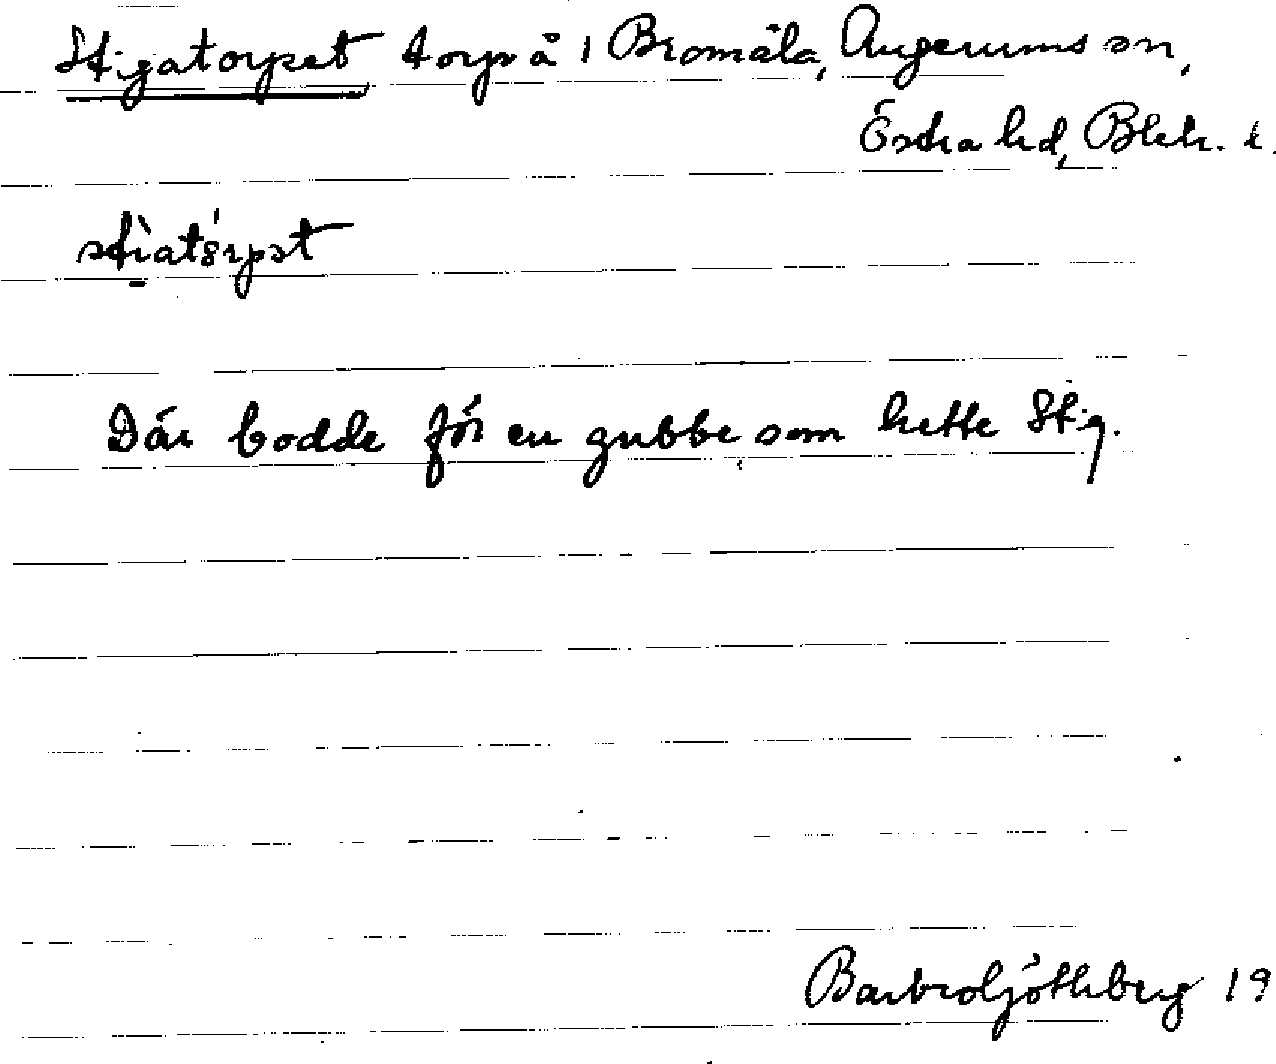 Stigatorpet torp å 1 Bromåla, Augerums sn,
Östra hd, Blek. l.
Där bodde för en gubbe som hette Stig.
Barbro Göthberg 19